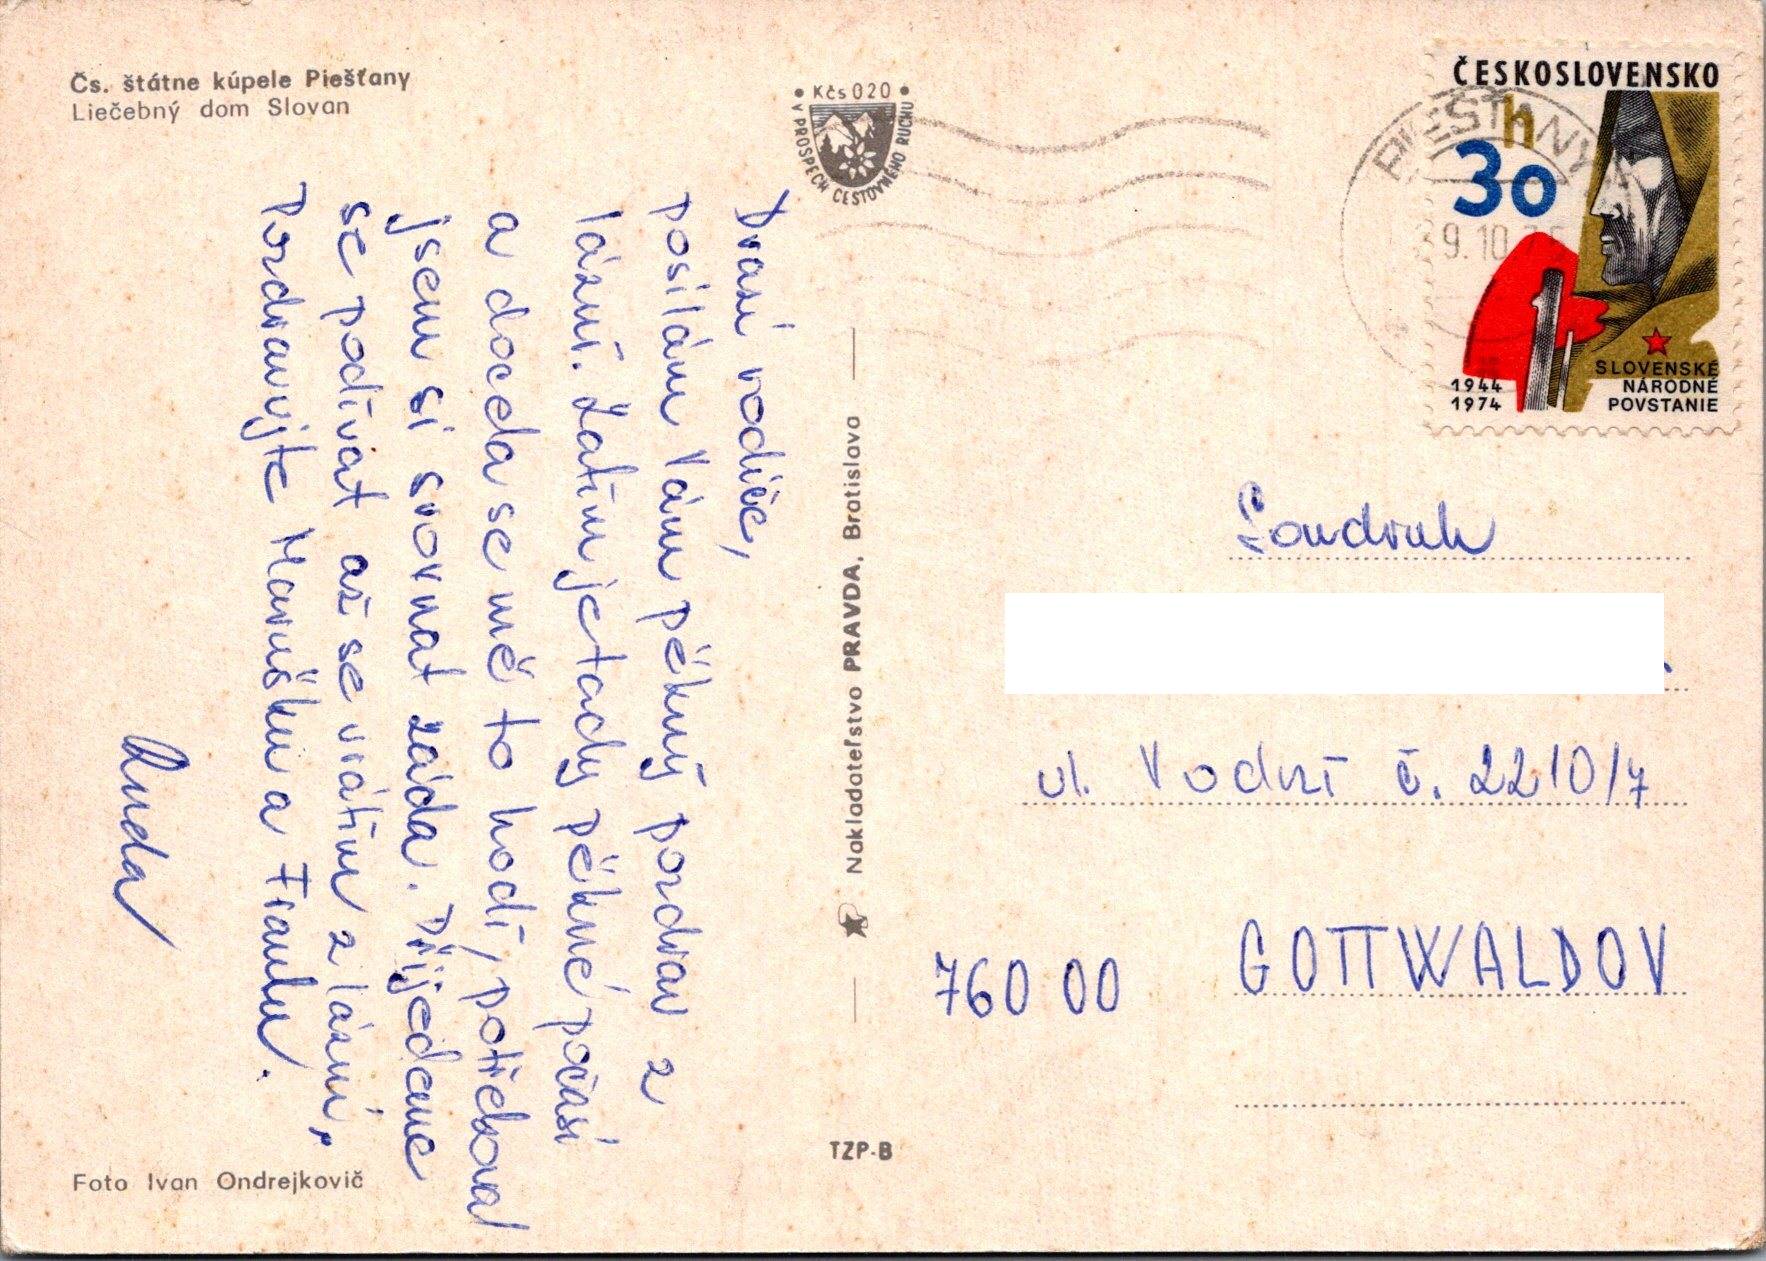 Čs. štátne kúpele Piešťany
Liečebný dom Slovan
• Kčs 020 •
V PROSPECH CESTOVNÉHO RUCHU
ČESKOSLOVENSKO
30 h
1944
1974
SLOVENSKÉ
NÁRODNÉ
POVSTANIE
PIEŠŤANY
9.10.75
Drazí rodiče,
posílám Vám pěkný pozdrav z
lázní. Zatím je tady pěkné počasí
a doceda se mě to hodí, potřeboval
jsem si srovnat záda. Přijedeme
se podívat až se vrátím z lázní,
Pozdravujte Marušku a Franku.
Ruda
Nakladateľstvo PRAVDA, Bratislava
Soudruh
ul. Vodní č. 2210/7
760 00 GOTTWALDOV
TZP-B
Foto Ivan Ondrejkovič